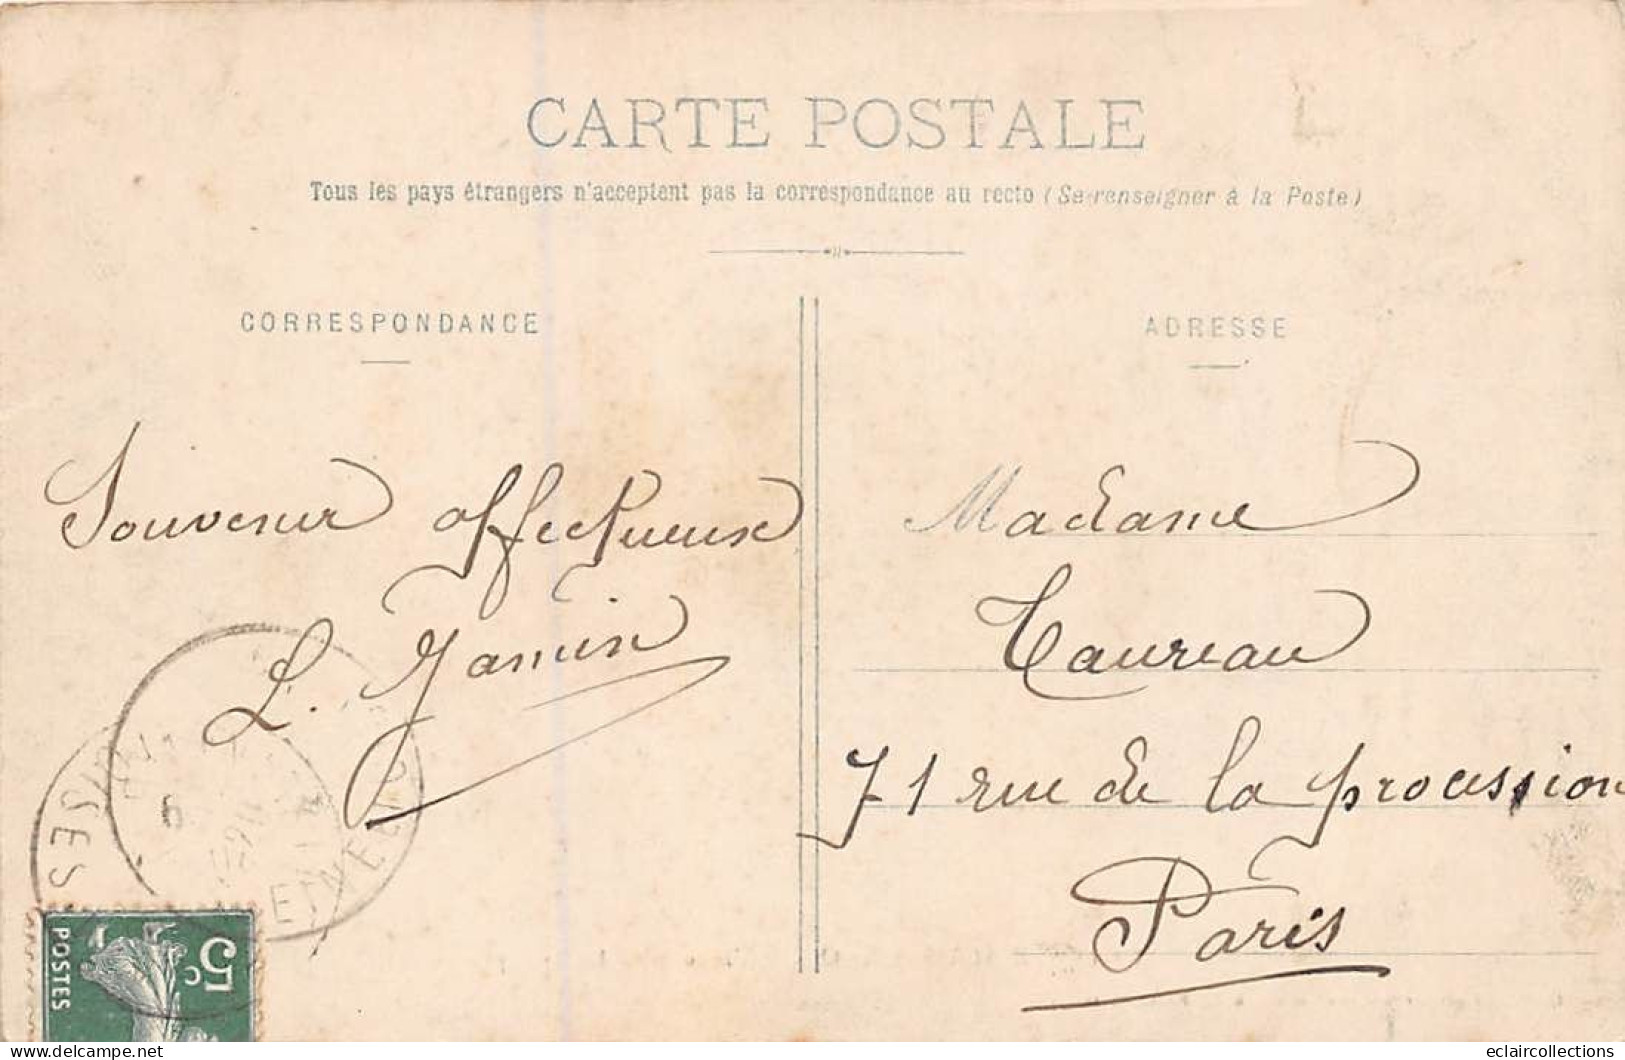 CARTE POSTALE
Tous les pays étrangers n'acceptent pas la correspondance au recto (Se renseigner à la Poste)
CORRESPONDANCE
Souvenir affectueux
L. Jamin
ADRESSE
Madame
Taureau
71 rue de la procession
Paris
POSTES
5c
delcampe.net
eclaircollections